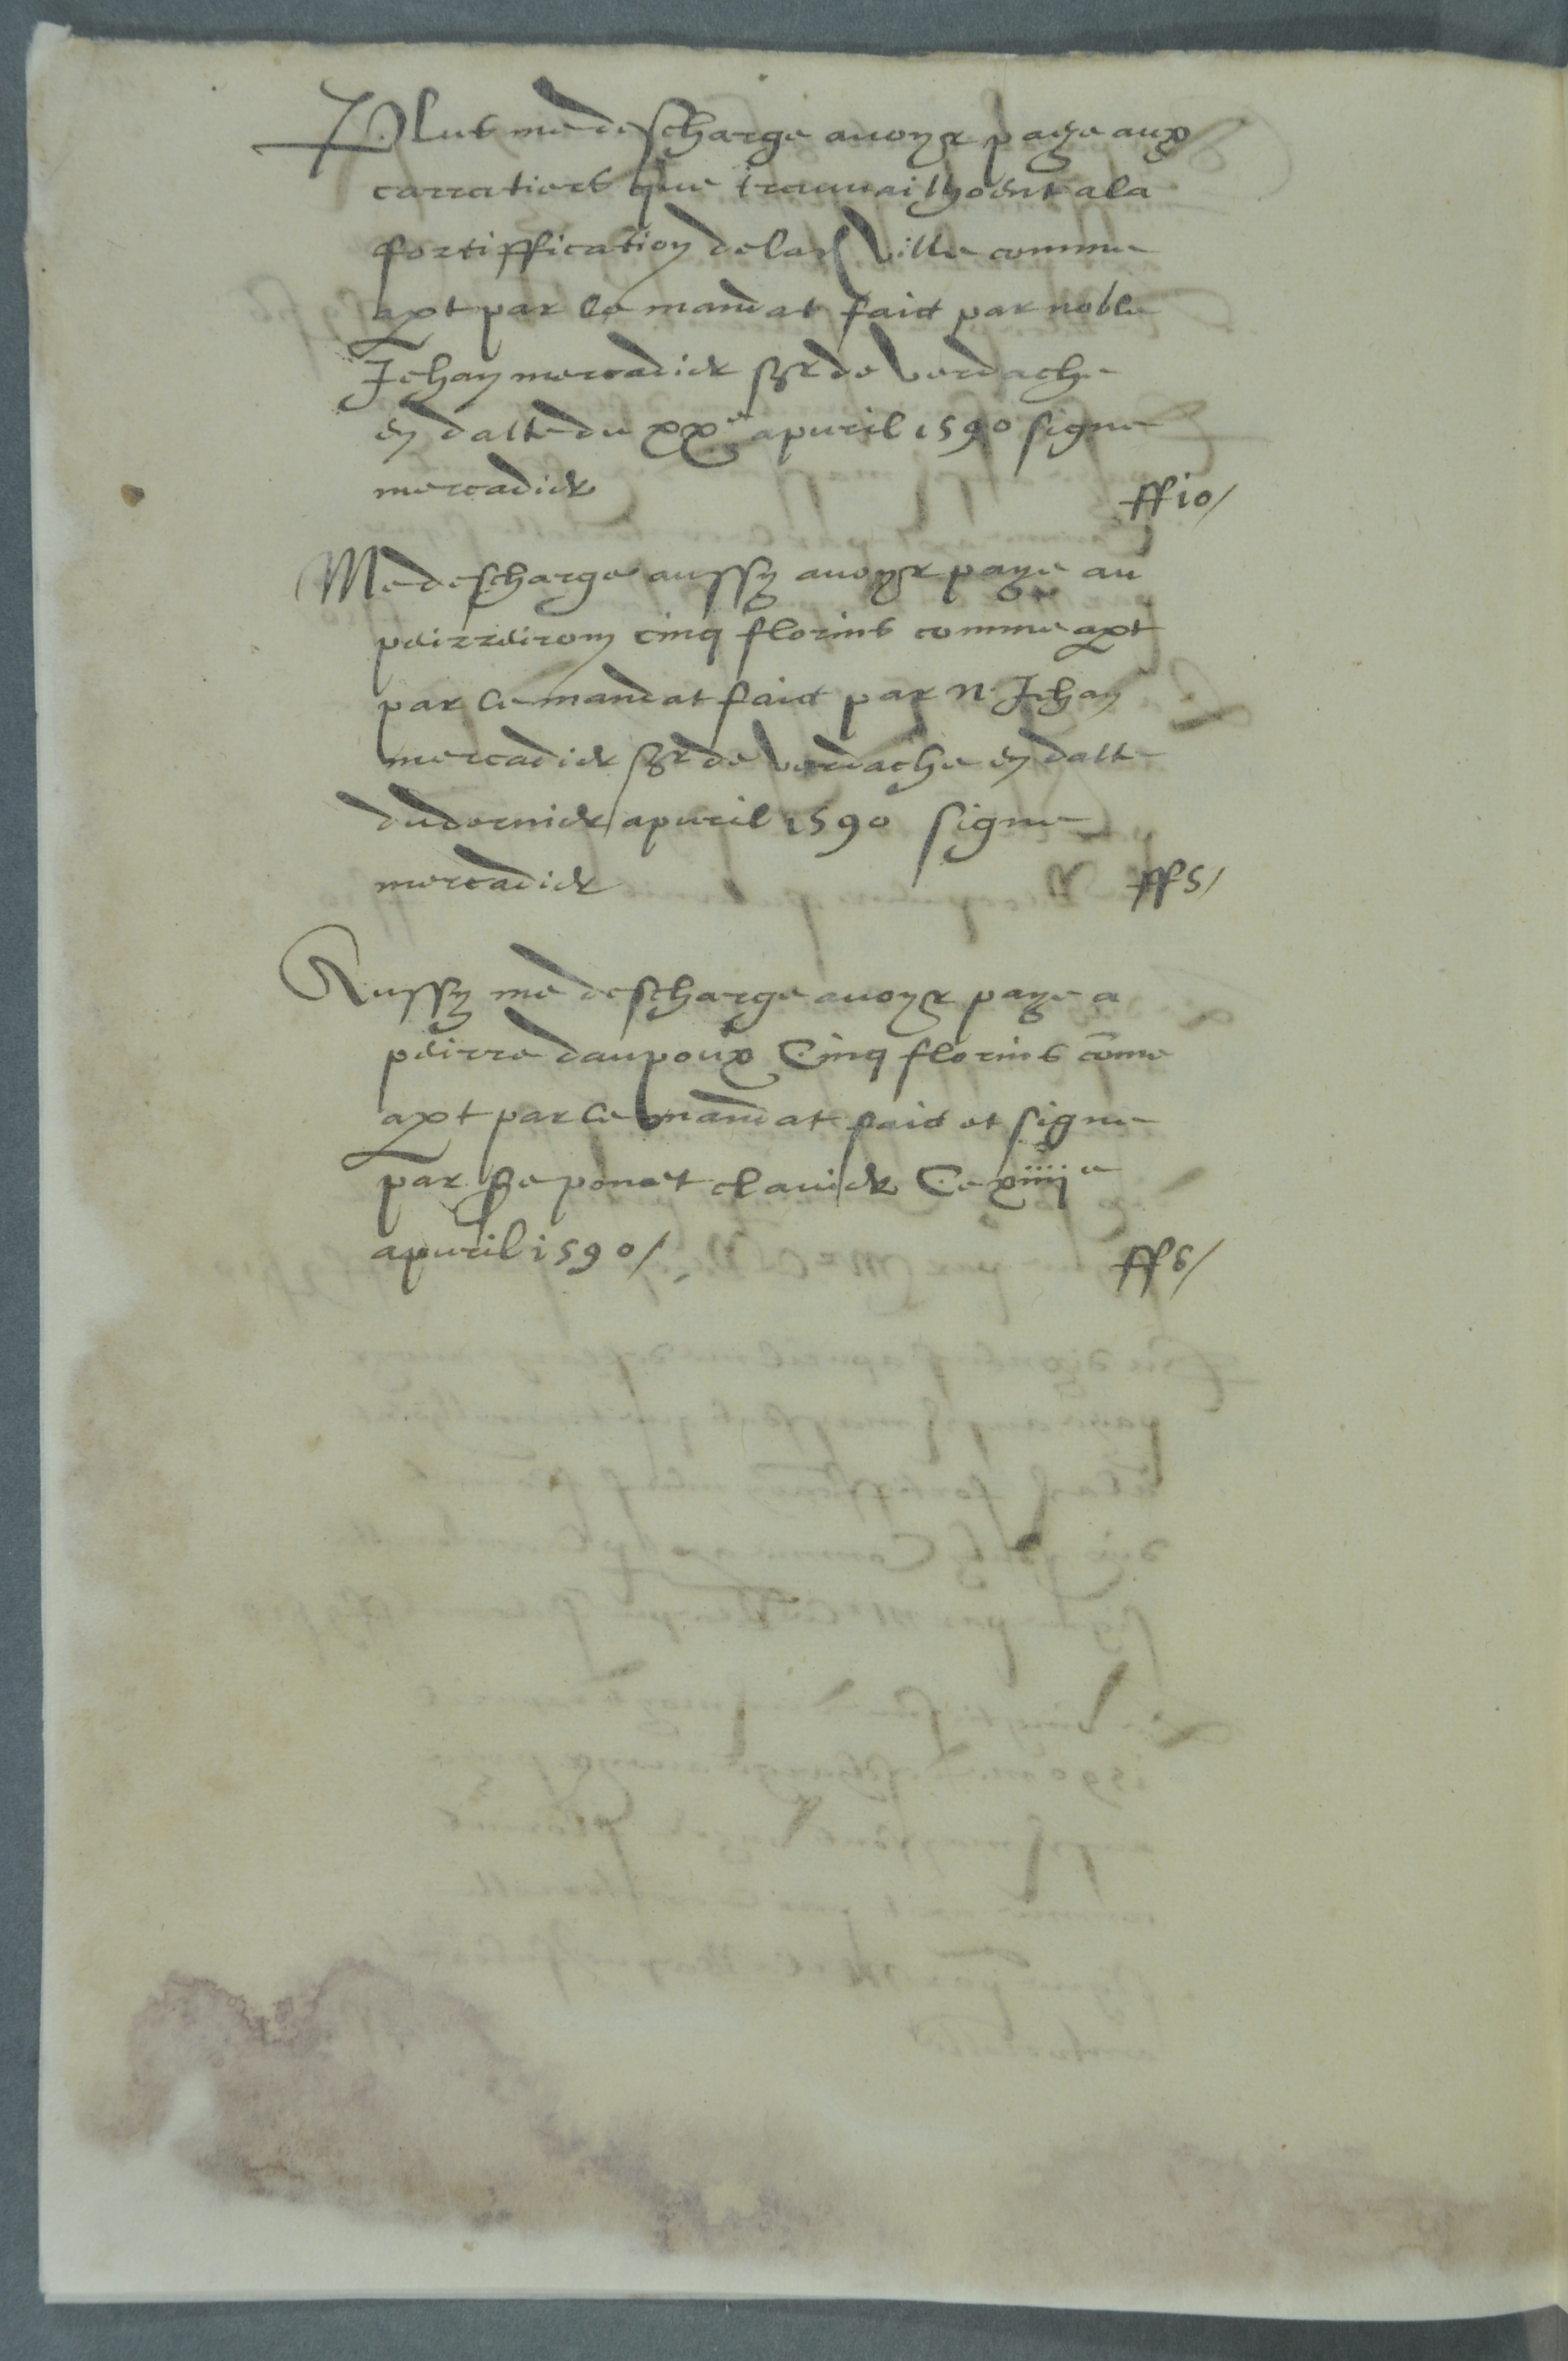 Plus me descharge avoyr paye aux
carratiers que travailhoent a la
fortiffication de lad ville comme
apt par le mandat faict par noble
Jehan mercadier sgr de verdache
en datte du xxe apvril 1590 signe
mercadier ff 10/
Me descharge aussy avoyr paye au
peirreirom cinq florins comme apt
par le mandat faict par N. Jehan
mercadier sgr de verdache en datte
du dernier apvril 1590 signe
mercadier ff 5/
Aussy me descharge avoyr paye a
peirre daupoux Cinq florins cōme
apt par le mandat faict et signe
par ponet clavier Ce xiiiie
apvril 1590/ ff 5/